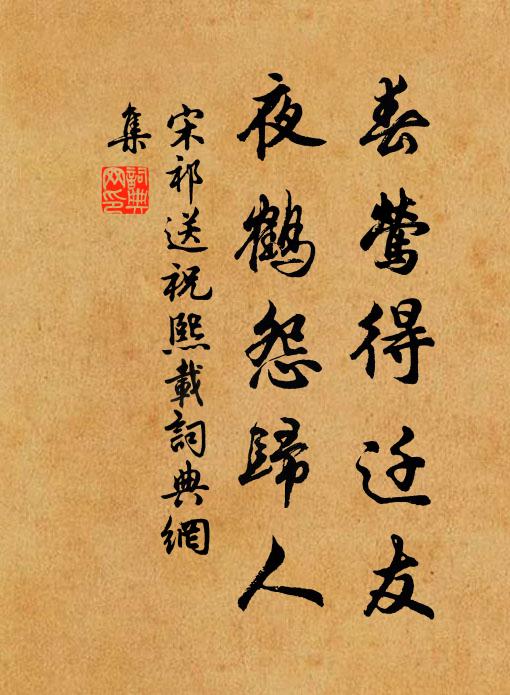 春莺得迁友
夜鶴怨歸人
宋祁送祝熙載詞典網
集
詞典
网印